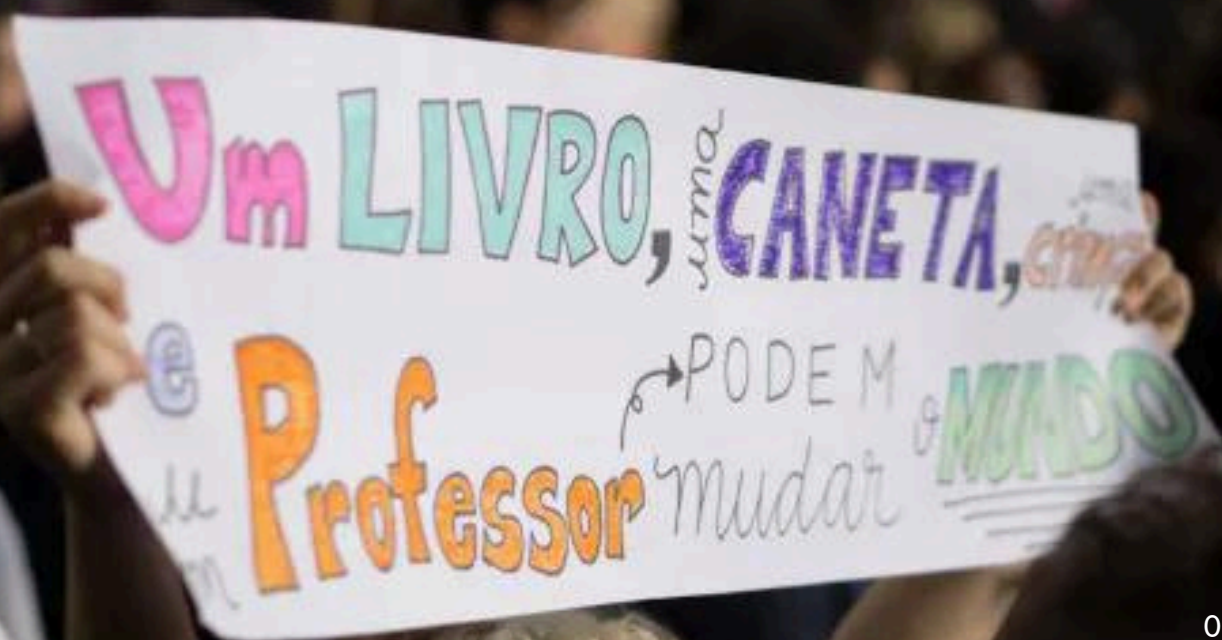 Um LIVRO, uma CANETA, uma criança
e um Professor PODEM
mudar o MUNDO
0